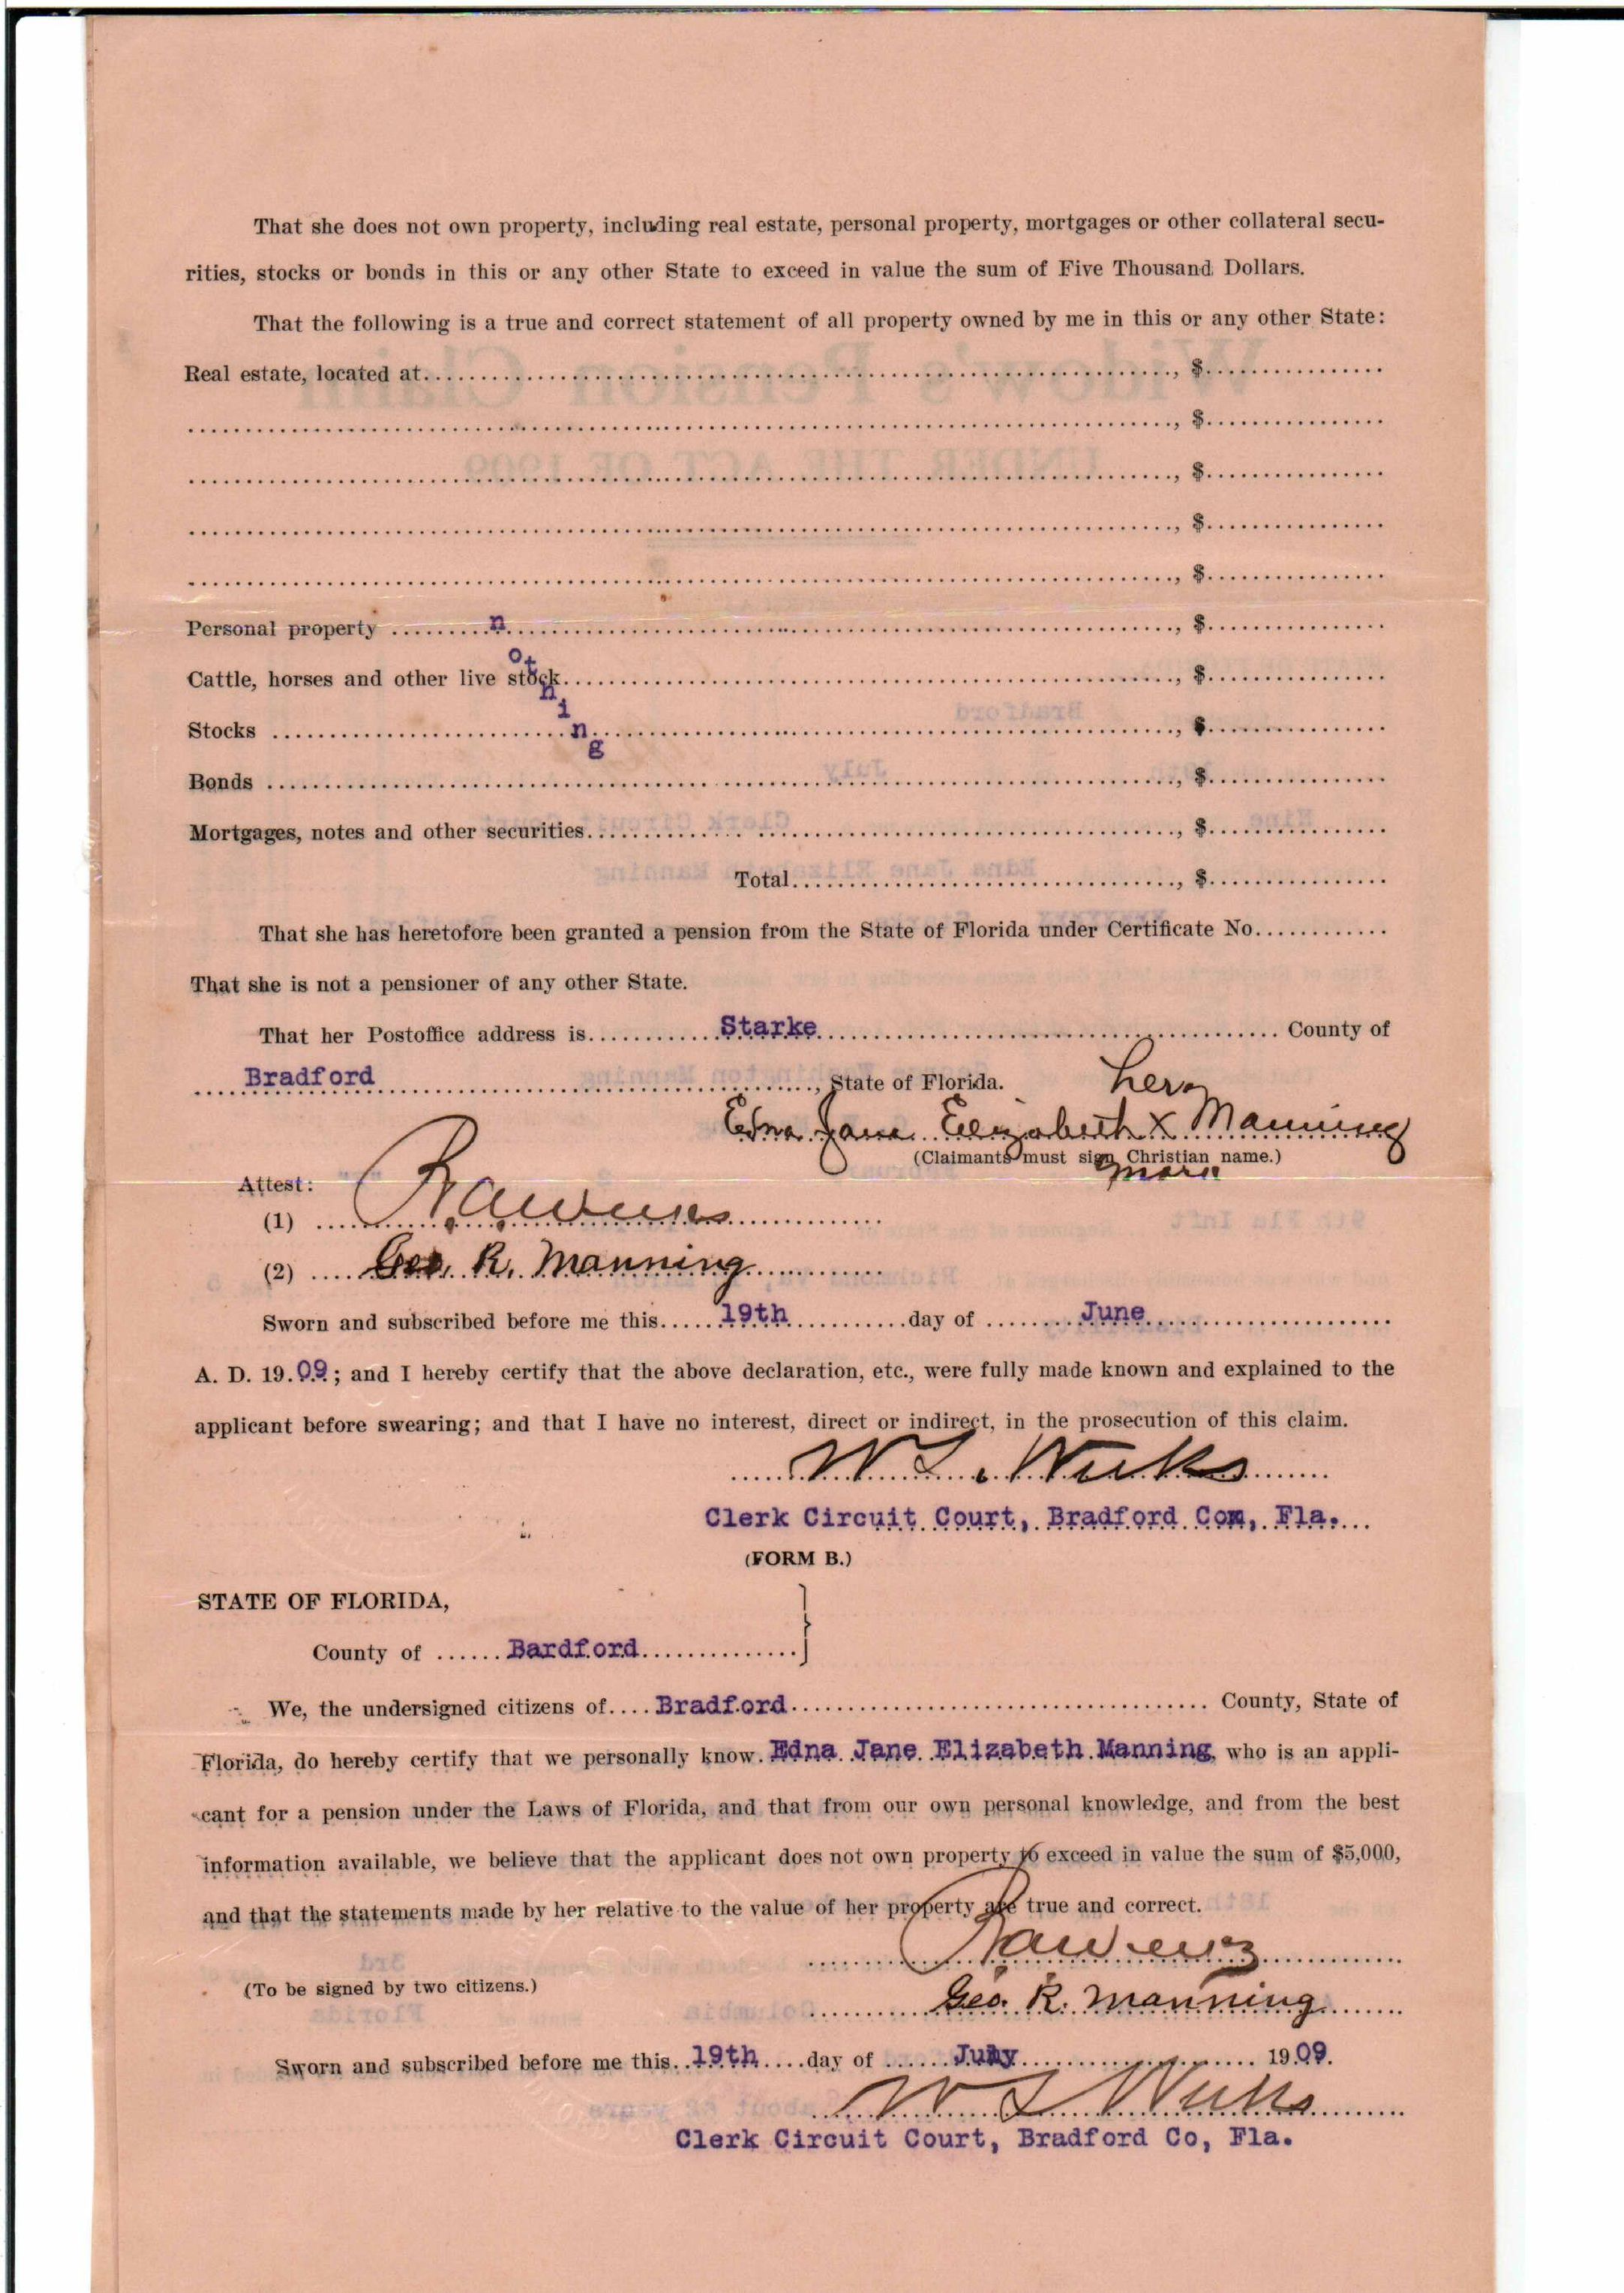 That she does not own property, including real estate, personal property, mortgages or other collateral secu-
rities, stocks or bonds in this or any other State to exceed in value the sum of Five Thousand Dollars.
That the following is a true and correct statement of all property owned by me in this or any other State:
Real estate, located at........................, $................
........................, $................
........................, $................
........................, $................
........................, $................
Personal property ........................, $................
Cattle, horses and other live stock........................, $................
Stocks ........................, $................
Bonds ........................, $................
Mortgages, notes and other securities........................, $................
nothing
Total........................, $................
That she has heretofore been granted a pension from the State of Florida under Certificate No............
That she is not a pensioner of any other State.
That her Postoffice address is............Starke........................ County of
....Bradford........................, State of Florida.
her
Edna Jane Elizabeth X Manning
(Claimants must sign Christian name.)
mark
Attest:
(1) ........................
(2) ....Geo. R. Manning............
Sworn and subscribed before me this......19th..........day of ........June....................
A. D. 19.09.; and I hereby certify that the above declaration, etc., were fully made known and explained to the
applicant before swearing; and that I have no interest, direct or indirect, in the prosecution of this claim.
W L. Weeks
Clerk Circuit Court, Bradford Com, Fla.
(FORM B.)
STATE OF FLORIDA,
County of ......Bardford..............
We, the undersigned citizens of....Bradford........................ County, State of
Florida, do hereby certify that we personally know.Edna Jane Elizabeth Manning, who is an appli-
cant for a pension under the Laws of Florida, and that from our own personal knowledge, and from the best
information available, we believe that the applicant does not own property to exceed in value the sum of $5,000,
and that the statements made by her relative to the value of her property are true and correct.
(To be signed by two citizens.)
Geo. R. Manning
Sworn and subscribed before me this..19th....day of ......July.................... 19.09.
W L Weeks
Clerk Circuit Court, Bradford Co, Fla.